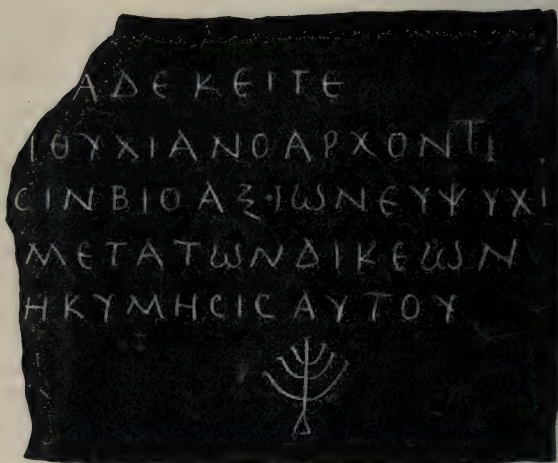 ΑΔΕ ΚΕΙΤΕ
ΙΟΥΧΙΑΝΟ ΑΡΧΟΝΤΙ
CΙΝΒΙΟ ΑΞΙΩΝ ΕΥΨΥΧΙ
ΜΕΤΑ ΤΩΝ ΔΙΚΕΩΝ
Η ΚΥΜΗCΙC ΑΥΤΟΥ